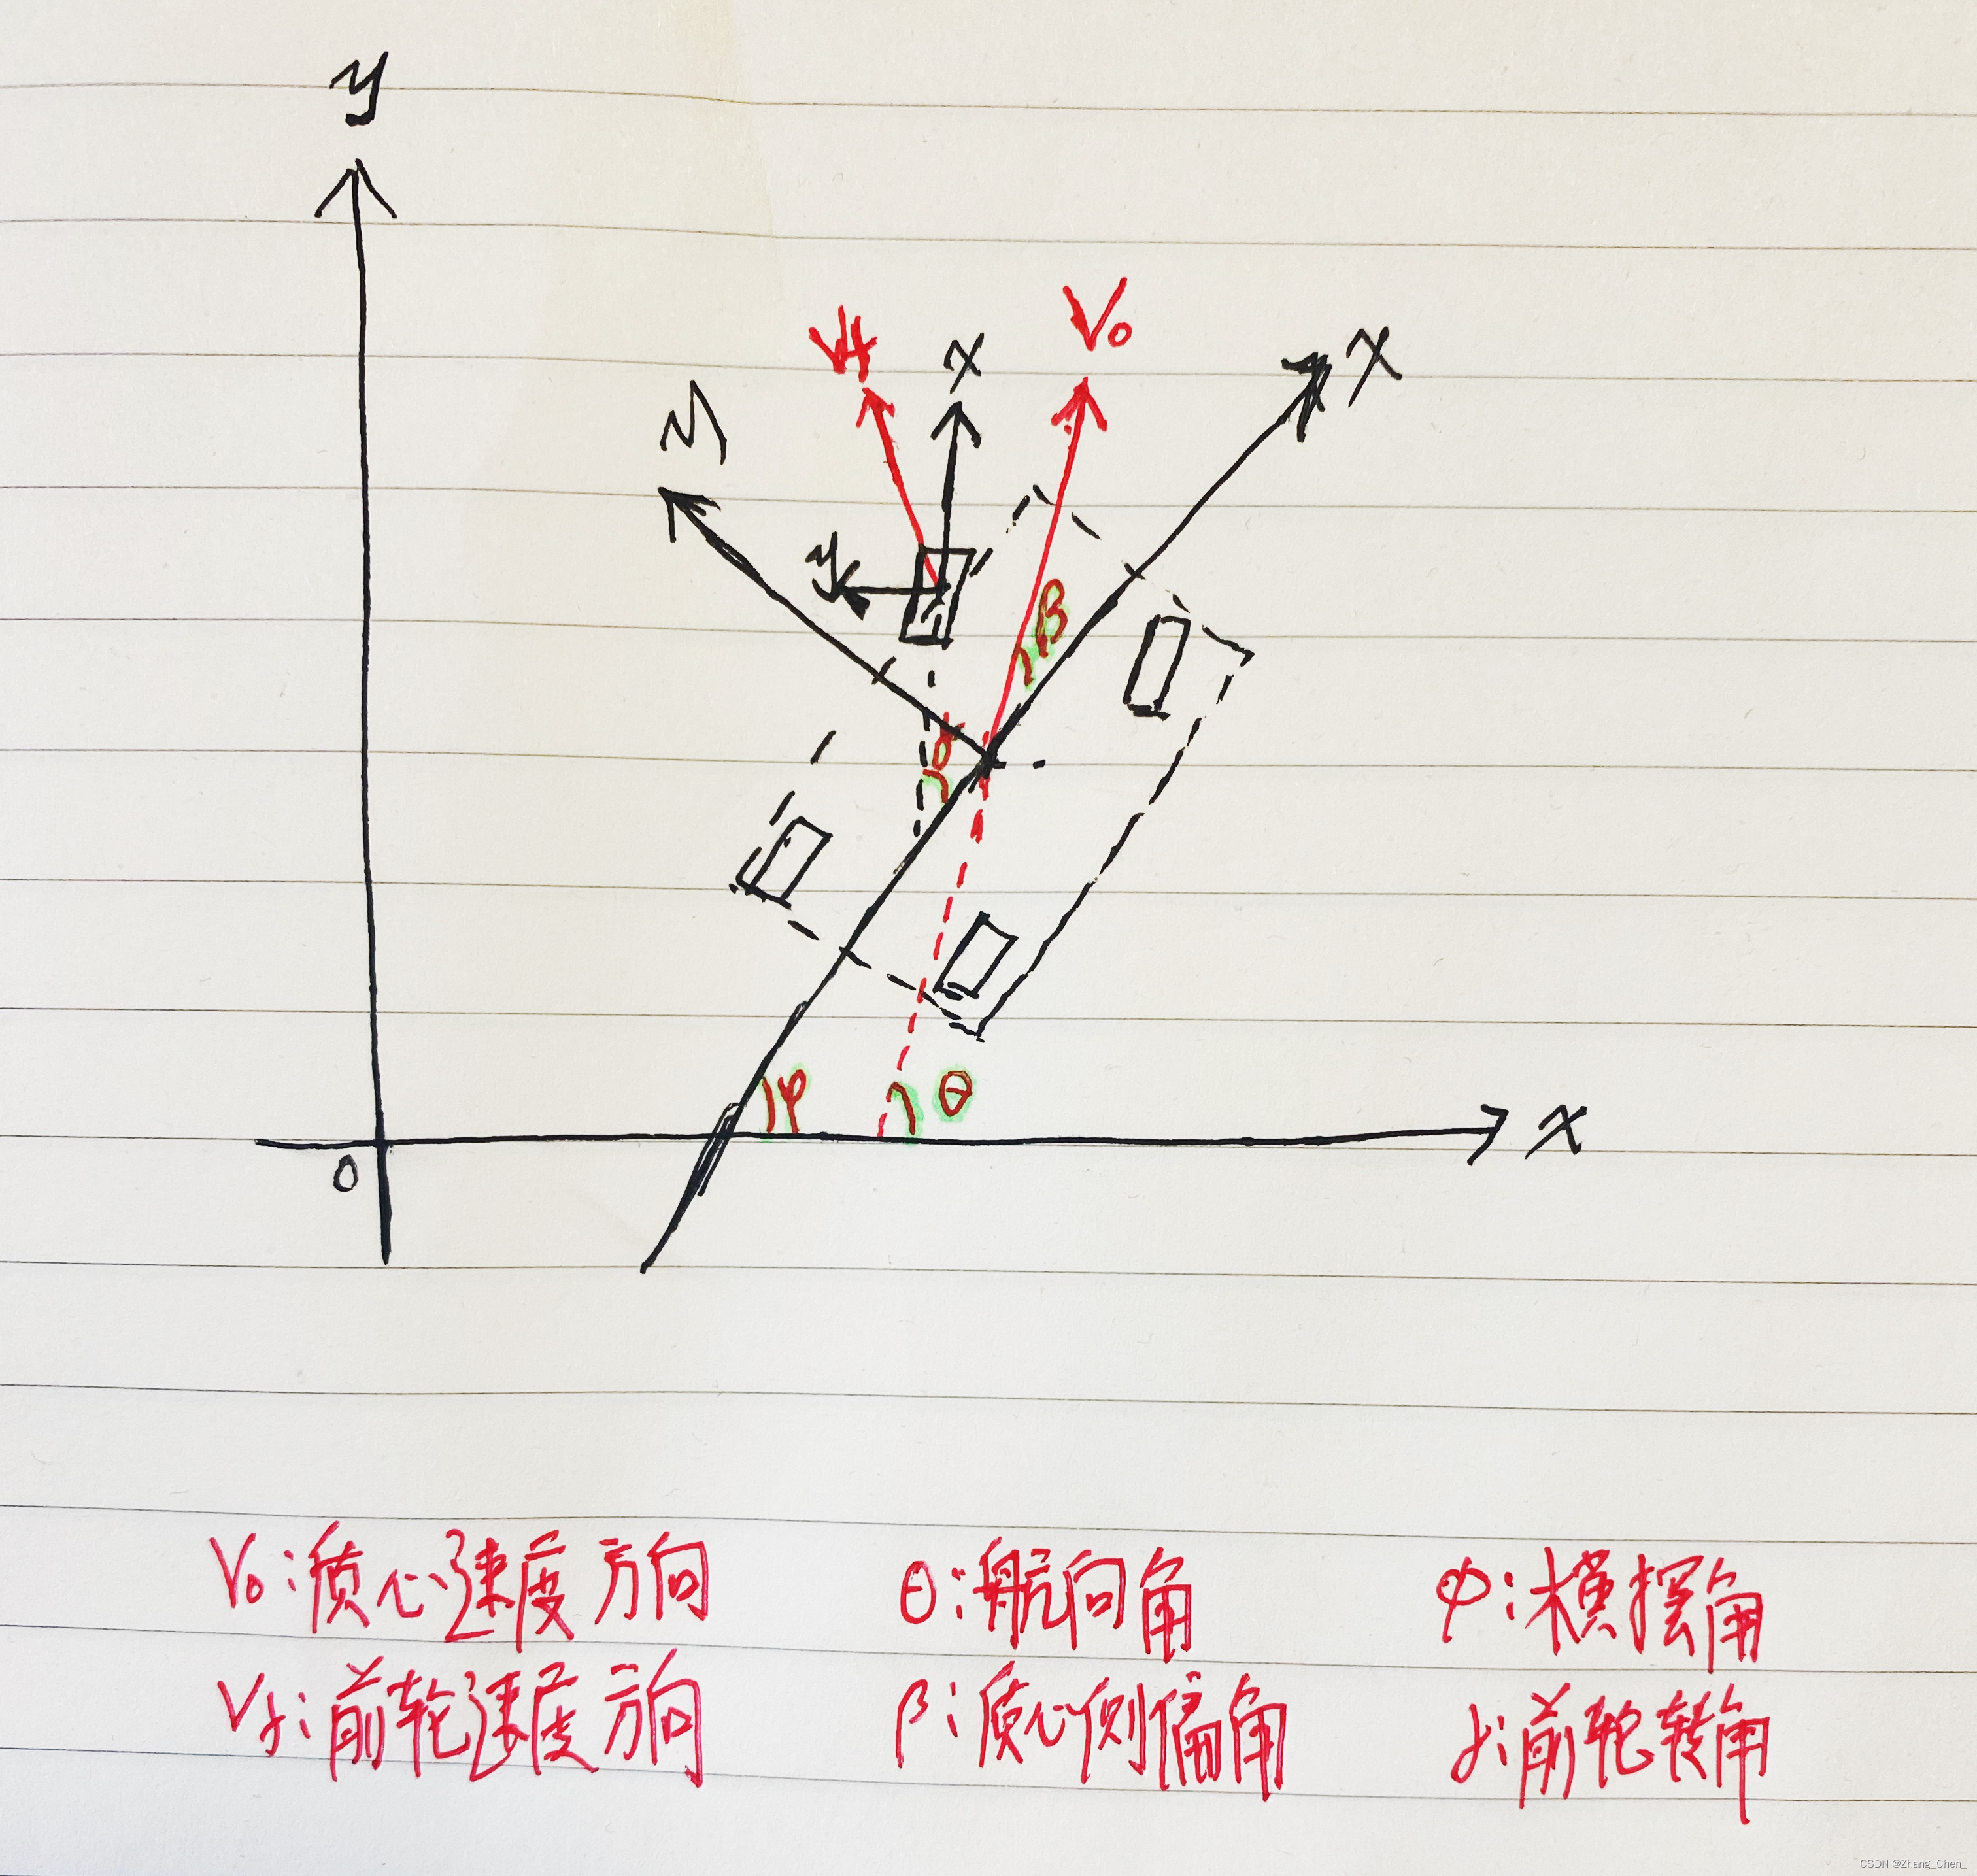 y
Vf
x
V₀
x
y
y
β
δ
φ
θ
x
0
V₀:质心速度方向 θ:航向角 φ:横摆角
Vf:前轮速度方向 β:质心侧偏角 δ:前轮转角
CSDN @Zhang_Chen_